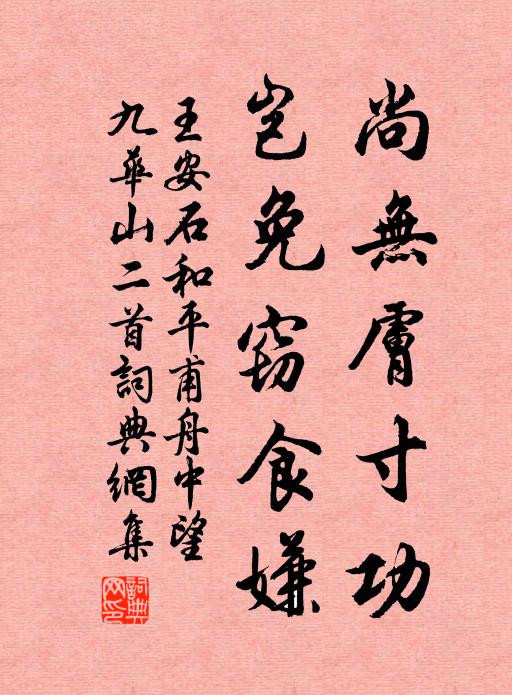 尚無膚寸功
豈免竊食嫌
王安石和平甫舟中望
九華山二首詞典網集
詞典
网印